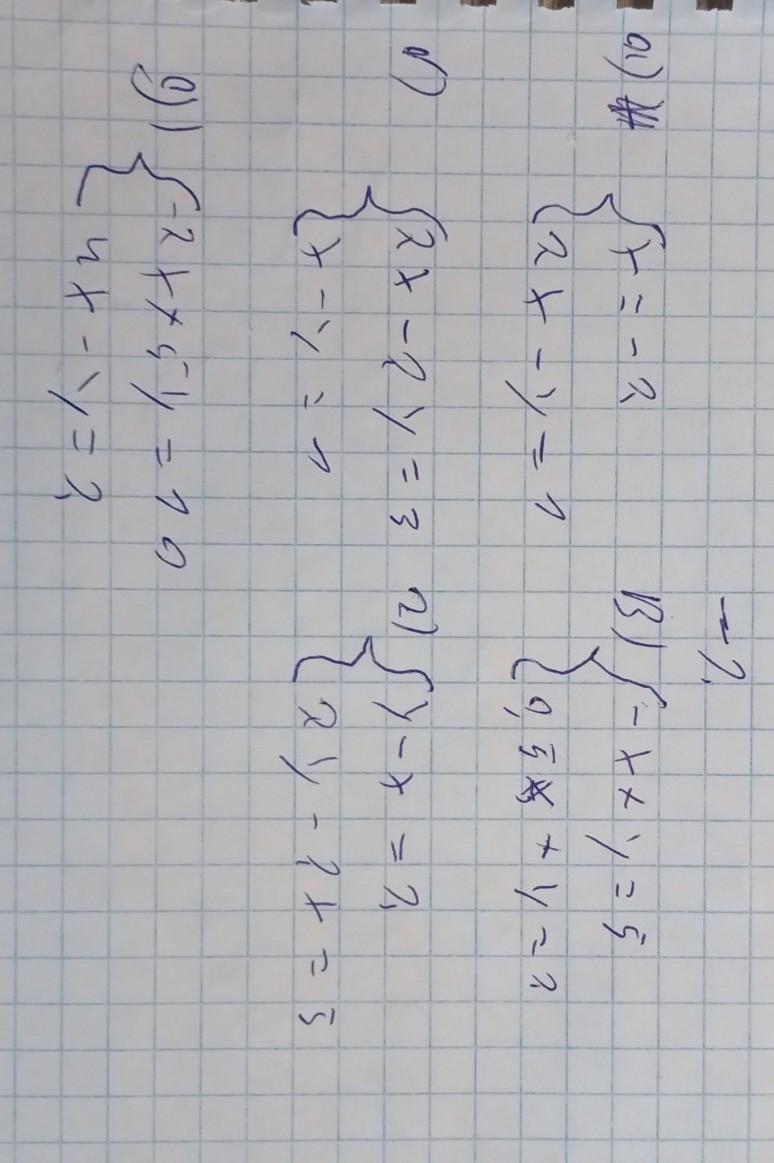 а)
{ x = -2
2x - y = 1
б)
{ 2x - 2y = 3
x - y = 1
-2
в) { -x + y = 5
0,5x + y = 2
г) { y - x = 2
2y - 2x = 5
д) { -2x + 5y = 10
4x - y = 2